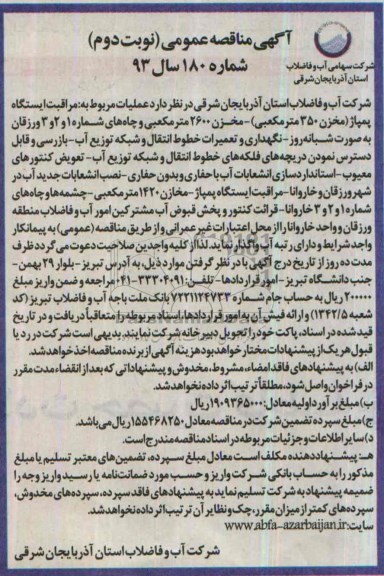 آگهی مناقصه عمومی (نوبت دوم)
شماره ۱۸۰ سال ۹۳
شرکت سهامی آب و فاضلاب
استان آذربایجان شرقی
شرکت آب و فاضلاب استان آذربایجان شرقی در نظر دارد عملیات مربوط به: مراقبت ایستگاه
پمپاژ (مخزن ۳۵۰ متر مکعبی) - مخزن ۲۶۰۰ متر مکعبی و چاه‌های شماره ۱ و ۲ و ۳ ورزقان
به صورت شبانه‌روز - نگهداری و تعمیرات خطوط انتقال و شبکه توزیع آب - بازرسی و قابل
دسترس نمودن دریچه‌های فلکه‌های خطوط انتقال و شبکه توزیع آب - تعویض کنتورهای
معیوب - استانداردسازی انشعابات آب با حفاری و بدون حفاری - نصب انشعابات جدید آب در
شهر ورزقان و خاروانا - مراقبت ایستگاه پمپاژ - مخازن ۱۴۲۰ متر مکعبی - چشمه‌ها و چاه‌های
شماره ۱ و ۲ و ۳ خاروانا - قرائت کنتور و پخش قبوض آب مشترکین امور آب و فاضلاب منطقه
ورزقان و واحد خاروانا را از محل اعتبارات غیر عمرانی و از طریق مناقصه (عمومی) به پیمانکار
واجد شرایط و دارای رتبه آب واگذار نماید. لذا از کلیه واجدین صلاحیت دعوت می گردد ظرف
مدت ده روز از تاریخ درج آگهی با در نظر گرفتن موارد ذیل، به آدرس تبریز - بلوار ۲۹ بهمن -
جنب دانشگاه تبریز - امور قراردادها - تلفن: ۳۳۳۰۴۰۹۱-۰۴۱ مراجعه و ضمن واریز مبلغ
۲۰۰۰۰۰ ریال به حساب جام شماره ۷۲۲۱۱۲۴۷۳۳ بانک ملت باجه آب و فاضلاب تبریز (کد
شعبه ۱۳۴۲/۵) و ارائه فیش آن به امور قراردادها، اسناد مربوطه را متعاقباً دریافت و در تاریخ
قید شده در اسناد، پاکت خود را تحویل دبیرخانه شرکت نمایند. بدیهی است شرکت در رد یا
قبول هر یک از پیشنهادات مختار خواهد بود هزینه آگهی از برنده مناقصه اخذ خواهد شد.
الف) به پیشنهادهای فاقد امضاء، مشروط، مخدوش و پیشنهاداتی که بعد از انقضاء مدت مقرر
در فراخوان واصل شود، مطلقاً ترتیب اثر داده نخواهد شد.
ب) مبلغ برآورد اولیه معادل: ۱۹۰۹۳۶۵۰۰۰ ریال
ج) مبلغ سپرده تضمین شرکت در مناقصه معادل ۱۵۵۴۶۸۲۵۰ ریال می‌باشد.
د) سایر اطلاعات و جزئیات مربوطه در اسناد مناقصه مندرج است.
هـ) پیشنهاد دهنده مکلف است معادل مبلغ سپرده، تضمین‌های معتبر تسلیم یا مبلغ
مذکور را به حساب بانکی شرکت واریز و حسب مورد ضمانت‌نامه یا رسید واریز وجه را
ضمیمه پیشنهاد به شرکت تسلیم نماید به پیشنهادهای فاقد سپرده، سپرده‌های مخدوش،
سپرده‌های کمتر از میزان مقرر، چک و نظایر آن ترتیب اثر داده نخواهد شد.
سایت: www.abfa-azarbaijan.ir
شرکت آب و فاضلاب استان آذربایجان شرقی